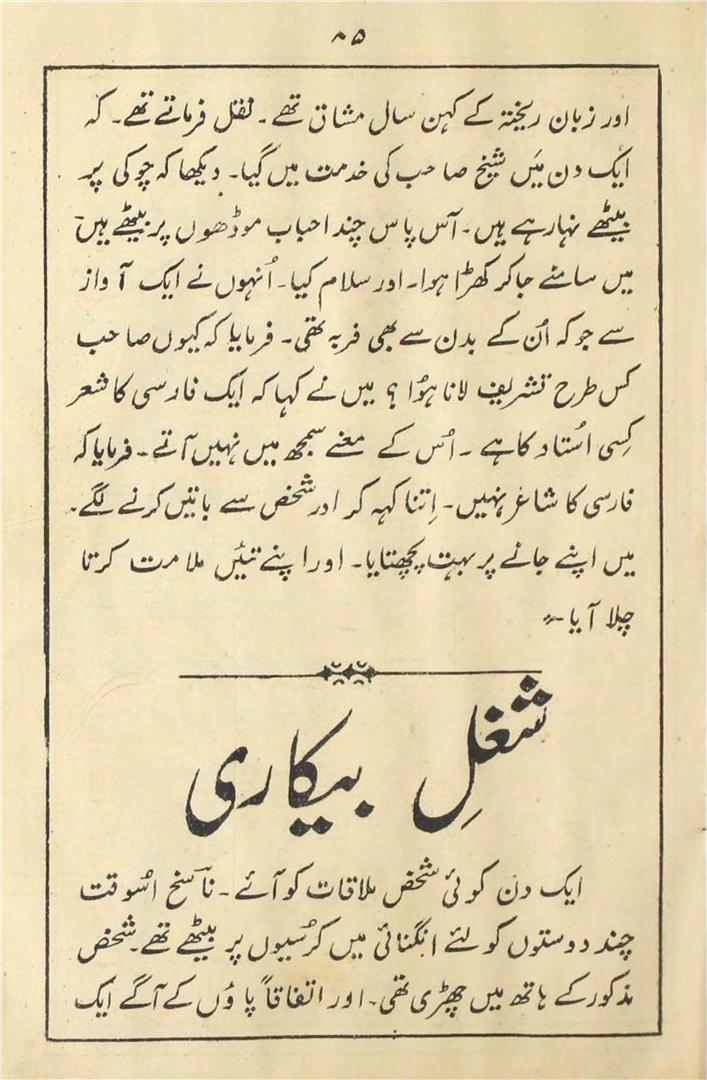 ۸۵
اور زبان ریختہ کے کہن سال مشاق تھے۔ نقل فرماتے تھے۔ کہ
ایک دن میَں شیخ صاحب کی خدمت میں گیا۔ دیکھا کہ چوکی پر
بیٹھے نہا رہے ہیں۔ آس پاس چند احباب موڈھوں پر بیٹھے ہیں۔
میں سامنے جا کر کھڑا ہوا۔ اور سلام کیا۔ اُنہوں نے ایک آواز
سے جو کہ اُن کے بدن سے بھی فربہ تھی۔ فرمایا کہ کیوں صاحب
کس طرح تشریف لانا ہؤا ؟ میں نے کہا کہ ایک فارسی کا شعر
کِسی اُستاد کا ہے ۔ اُس کے معنے سمجھ میں نہیں آتے۔ فرمایا کہ
فارسی کا شاعر نہیں۔ اِتنا کہہ کر اور شخص سے باتیں کرنے لگے۔
میں اپنے جانے پر بہت پچھتایا۔ اور اپنے تئیں ملامت کرتا
چلا آیا۔
شغلِ بیکاری
ایک دن کوئی شخص ملاقات کو آئے ۔ ناسخ اسُوقت
چند دوستوں کو لئے انگنائی میں کرُسیوں پر بیٹھے تھے۔ شخص
مذکور کے ہاتھ میں چھڑی تھی۔ اور اتفاقاً پاؤں کے آگے ایک